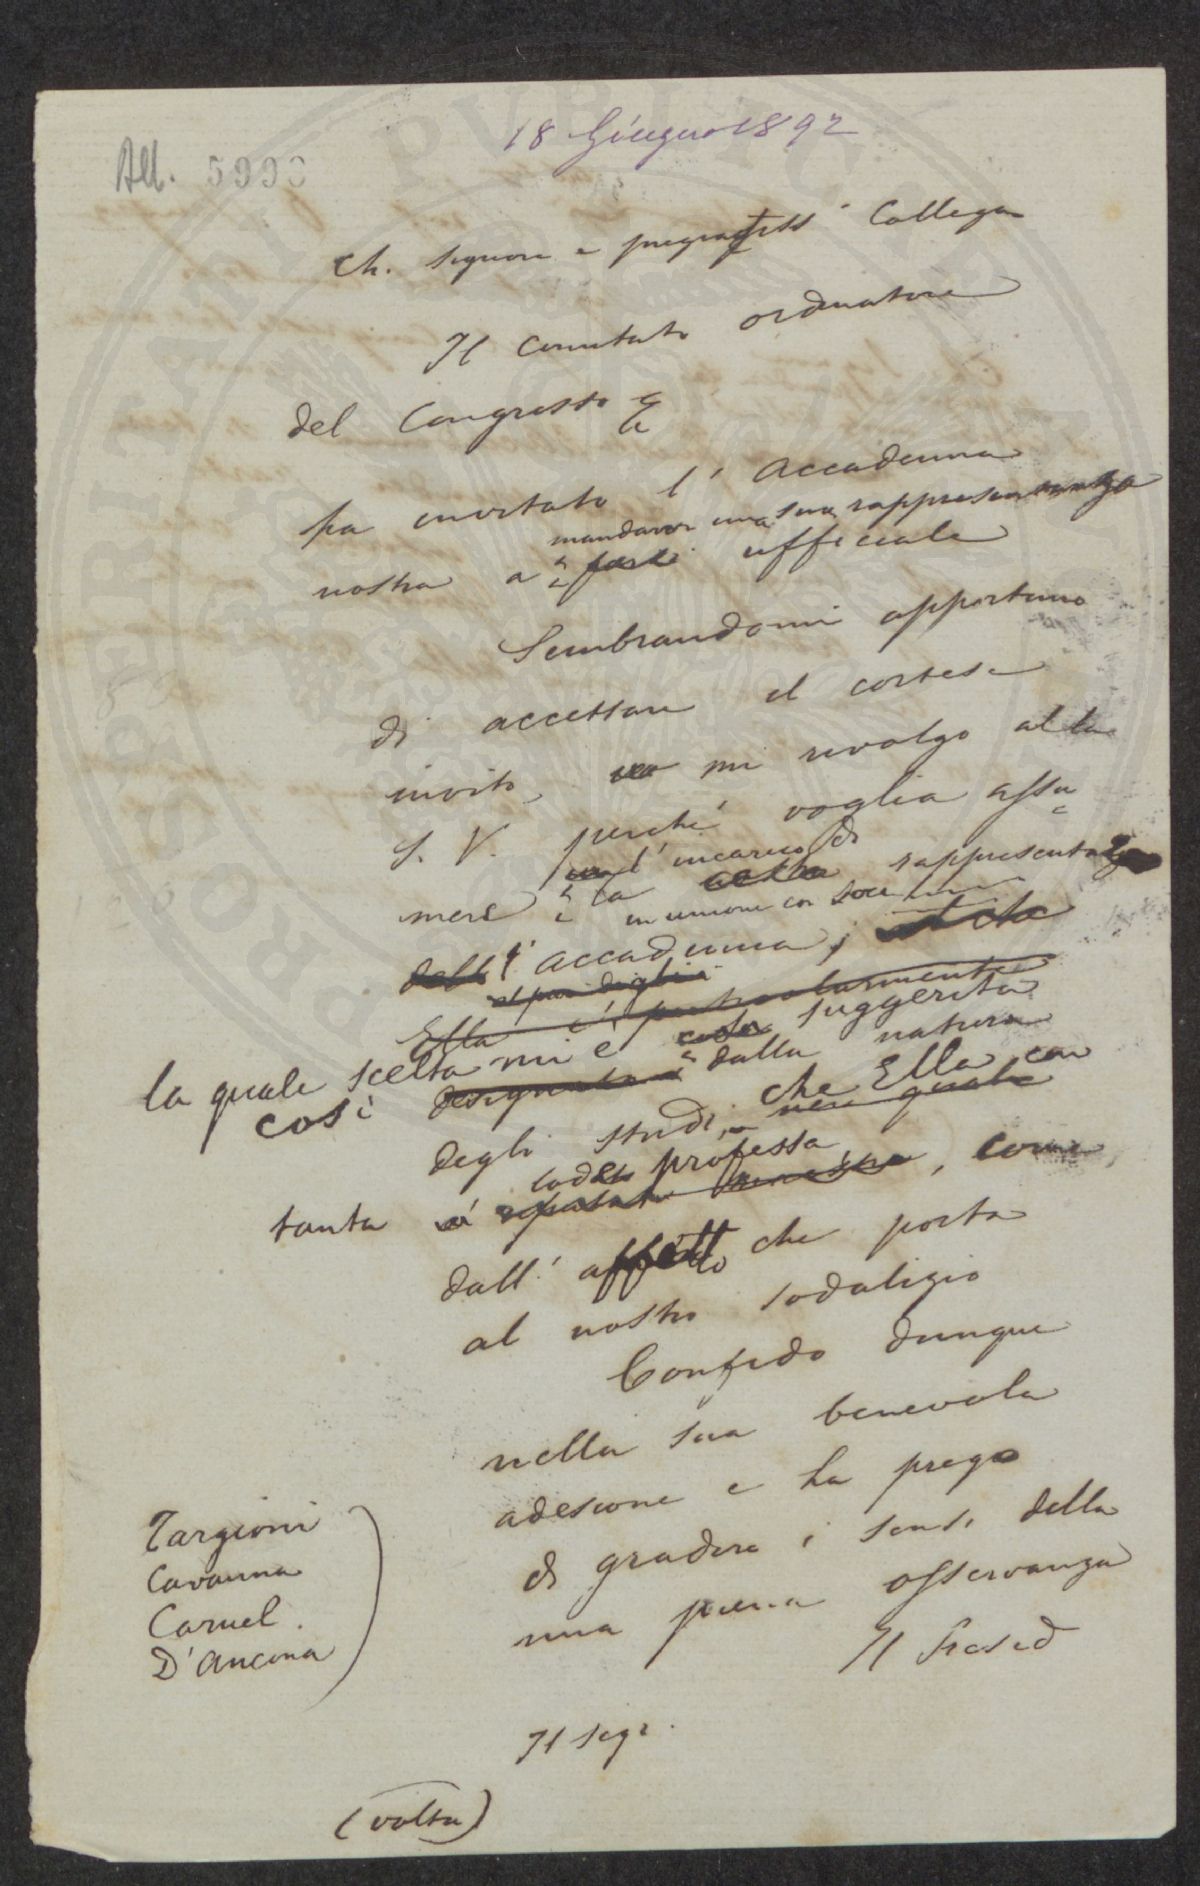 18 Giugno 1892
All. 5993
Ch. Signore e pregiatiss Collega
Il Comitato ordinatore
del Congresso
ha invitato l'Accademia
mandarvi una sua rappresentanza
nostra a farsi ufficiale
Sembrandomi opportuno
di accettare il cortese
invito, mi rivolgo alla
S. V. perchè voglia assu
l'incarico di
mere la rappresentanza
in unione con
dell' Accademia, che
al pari degli
Ella è particolarmente
la quale scelta mi è suggerita
così designato dalla natura
degli studi, che Ella con
nei quali
tanta lode professa, come
è reputato maestro
dall' affetto che porta
al nostro sodalizio
Confido dunque
nella sua benevola
adesione e La prego
di gradire i sensi della
mia piena osservanza
Il Presid
Targioni
Cavanna
Caruel.
D'Ancona
Il Segr.
(volta)